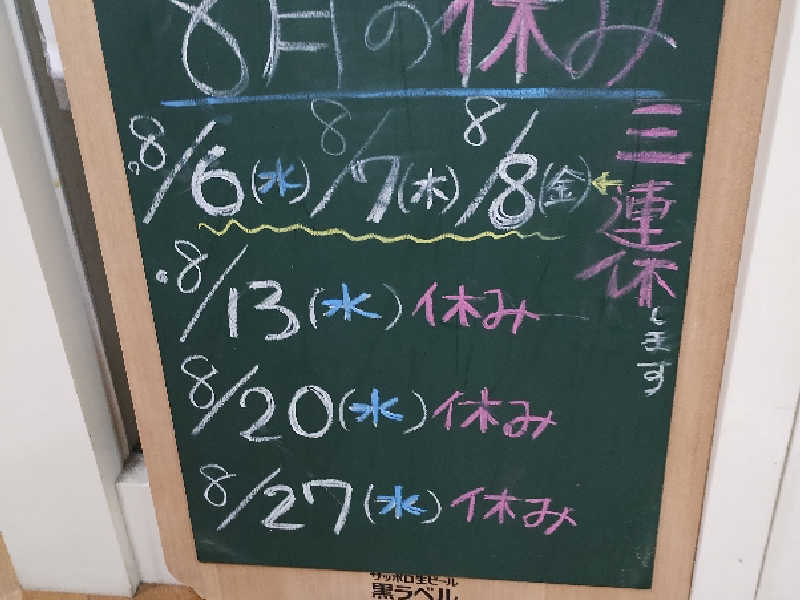 8月の休み
8/6(水) 8/7(木) 8/8(金)←
三連休します
8/13(水)休み
8/20(水)休み
8/27(水)休み
サッポロ生ビール
黒ラベル